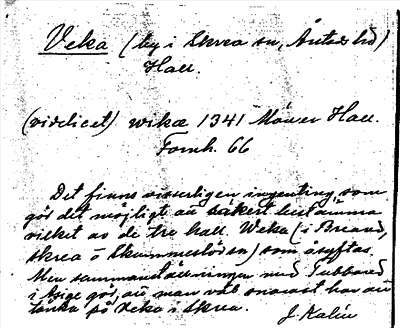 Veka (by i Skrea sn, Årstads hd)
Hall.
(videlicet) wikæ 1341 Möller Hall.
Fornh. 66
Det finns visserligen ingenting som
gör det möjligt att säkert bestämma
vilket av de tre hall. Weka (i Breared,
Skrea o Skummeslövsn) som åsyftas.
Men sammanställningen med Tubbared
i Asige gör, att man väl snarast har att
tänka på Veka i Skrea.
J. Kalén